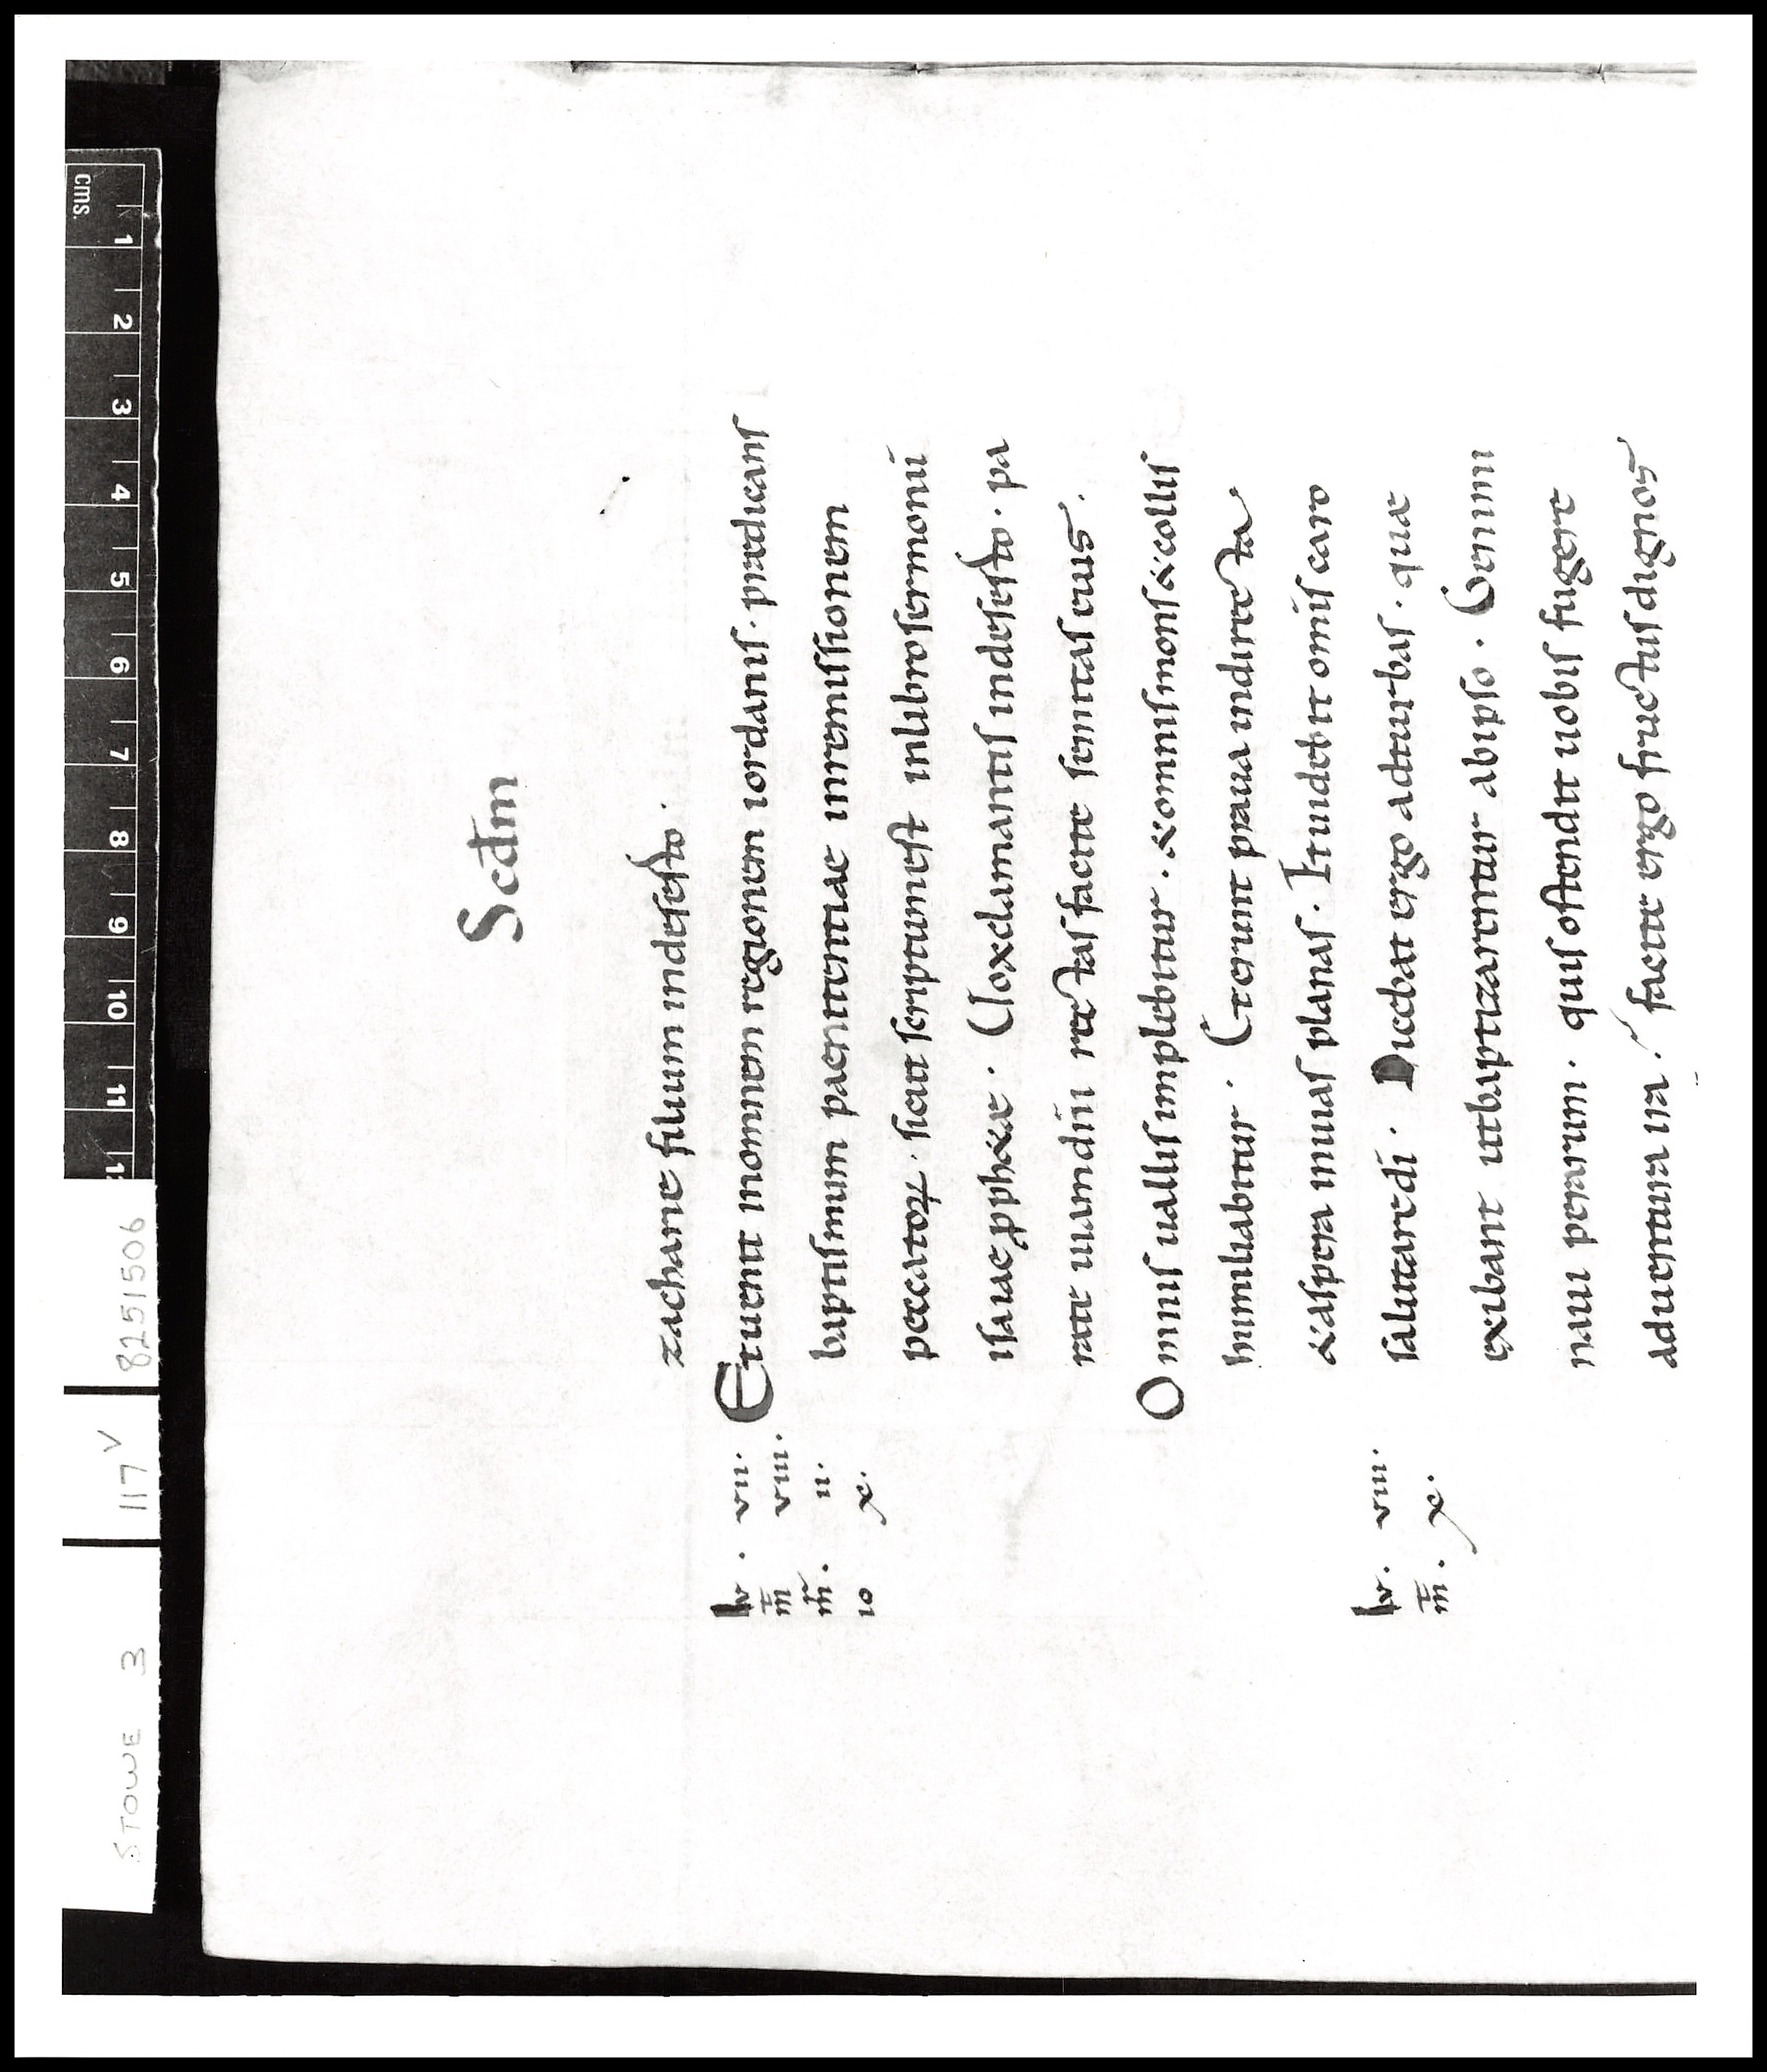 cms. 1 2 3 4 5 6 7 8 9 10 11 1
STOWE 3 117v 8251506
Scdm
zachariae filium indeserto.
lv. vii. Et uenit inomnem regionem iordanis. praedicans
mt viii.
baptismum paenitentiae inremissionem
mr. ii.
io x.
peccatoꝝ. sicut scriptumest inlibrosermonū
isaiae ꝓphetae. Uoxclamantis indeserto. pa
rate uiamdn̄i rectasfacite semitaseius.
Omnis uallisimplebitur. &omnismons&collis
humiliabitur. Eterunt praua indirecta
&aspera inuias planas. Etuidebit omīs caro
lv. viii. salutaredi. Dicebat ergo adturbas. quae
mt. x.
exibant utbaptizarentur abipso. Genimi
na uiperarum. quis ostendit uobis fugere
aduentura ira. facite ergo fructus dignos